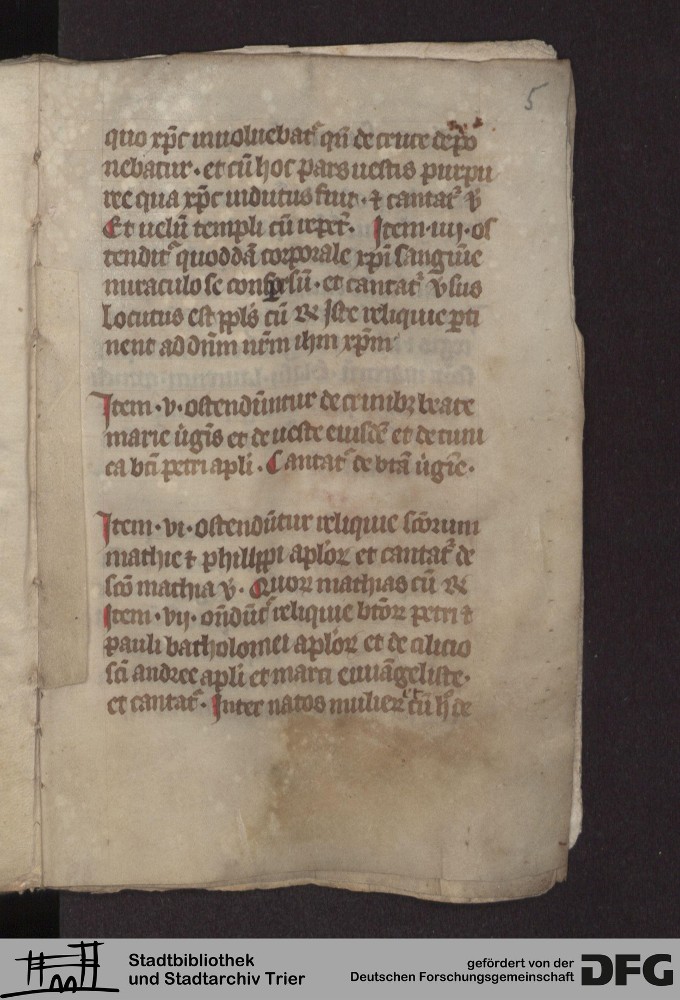 5
quo xp̄c inuoluebat᷑ qn̄ de cruce depo
nebatur · et cū hoc pars uestis purpu
ree qua xp̄c indutus fuit · ⁊ cantat᷑ v̄
Et uelū templi cū repet᷑ · Item · iiij · os
tendit᷑ quoddā corporale xp̄i sanguīe
miraculose conspersū · et cantat᷑ v̄sus
Locutus est ppl̄s cū R᷒ Iste reliquie ꝑti
nent ad dn̄m nr̄m ihm xp̄m
Item · v · ostendūtur de crinibꝫ beate
marie ūgīs et de ueste eiusdē et de tuni
ca bt̄i petri apl̄i · Cantat᷑ de bt̄ā ūgīe ·
Item · vi · ostendūtur reliquie sc̄orum
mathie ⁊ philippi apl̄oꝝ et cantat᷑ de
sc̄o mathia v̄ · Quoꝝ mathias cū R᷒
Item · vij · on̄dūt᷑ reliquie bt̄oꝝ petri ⁊
pauli batholomei apl̄oꝝ et de cilicio
sc̄i andree apl̄i et marci euuāgeliste ·
et cantat᷑ · Inter natos mulieꝝ et cū
Stadtbibliothek
und Stadtarchiv Trier
gefördert von der
Deutschen Forschungsgemeinschaft
DFG